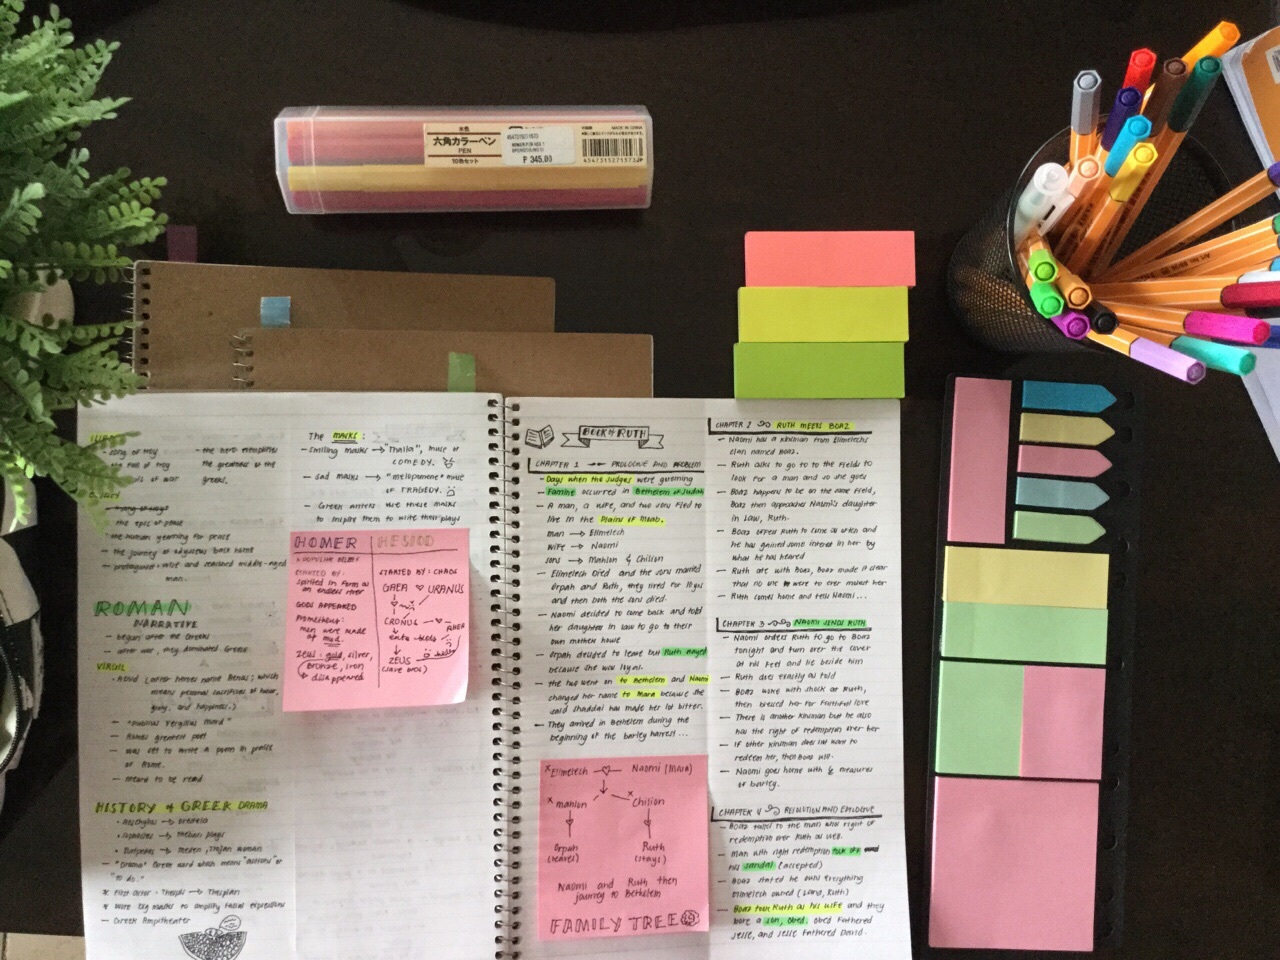 水色
六角カラーペン
PEN
10色セット
₱ 345.00
MADE IN CHINA
The MASKS:
— smiling masks → "Thalia", muse of
COMEDY.
— sad masks → "melopomene" muse
of TRAGEDY.
— Greek writers use these masks
to inspire them to write their plays
— the journey of odysseus back home
man.
ROMAN
NARRATIVE
— began after the Greeks
— after war, they dominated Greece
VIRGIL
— Romes greatest poet
— was set to write a poem in praise
of Rome.
— meant to be read
HISTORY of GREEK DRAMA
• Aeschylus → Oresteia
• Sophocles → Theban plays
• Euripedes → Medea, Trojan Woman
— "Drama" Greek word which means "action" or
"to do."
* First actor - Thespis → Thespian
* Wore big masks to amplify facial expressions
— Greek Ampitheater
HOMER
STARTED BY:
GODS APPEARED
Prometheus:
men were made
of mud.
ZEUS - gold, silver,
bronze, iron
↳ disappeared
HESIOD
STARTED BY: CHAOS
GAEA ♡ URANUS
CRONUS — ♡ — RHEA
ZEUS
BOOK of RUTH
CHAPTER 1 PROLOGUE AND PROBLEM
— Days when the judges were governing
— Famine occurred in Bethelem of Judah
— A man, a wife, and two sons fled to
live in the Plains of Moab.
man → Elimelech
wife → Naomi
sons → Mahlon & Chilion
— Elimelech Died and the sons married
Orpah and Ruth, they lived for 10 yrs
and then both the sons died.
— Naomi decided to come back and told
her daughter in law to go to their
own mothers house
— Orpah decided to leave but Ruth stayed
because she was loyal.
— the two went on to Bethelem and Naomi
changed her name to Mara because she
said Shaddai has made her lot bitter.
— They arrived in Bethelem during the
beginning of the barley harvest...
× Elimelech ♡ Naomi (Mara)
× Mahlon × Chilion
Orpah Ruth
(leaves) (stays)
Naomi and Ruth then
journey to Bethelem
FAMILY TREE
CHAPTER 2 RUTH MEETS BOAZ
— Naomi has a kinsman from Elimelechs
clan named Boaz.
— Ruth asks to go to to the fields to
look for a man and so she goes
— Boaz happens to be on the same field,
Boaz then approaches Naomi's daughter
in law, Ruth.
— Boaz offers Ruth to come as often and
he has gained some interest in her by
what he has heard
— Ruth ate with Boaz, Boaz made it clear
that no one were to ever molest her
— Ruth comes home and tells Naomi...
CHAPTER 3 NAOMI SENDS RUTH
— Naomi orders Ruth to go to Boaz
tonight and turn over the cover
at his feet and lie beside him
— Ruth does exactly as told
— Boaz woke with shock at Ruth,
then blessed her for faithful love
— There is another kinsman but he also
has the right of redemption over her
— If other kinsman does not want to
redeem her, then Boaz will.
— Naomi goes home with 6 measures
of barley.
CHAPTER 4 RESOLUTION AND EPILOGUE
— Boaz talks to the man who right of
redemption over Ruth as well.
— Man with right redemption took off
his sandal (accepted)
— Boaz stated he owns everything
Elimelech owned (Land, Ruth)
— Boaz took Ruth as his wife and they
bore a son, Obed. Obed fathered
Jesse, and Jesse fathered David.